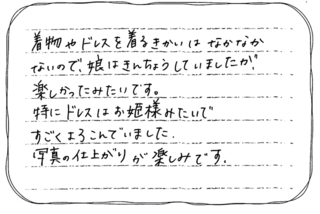 着物やドレスを着るきかいはなかなか
ないので、娘はきんちょうしていましたが、
楽しかったみたいです。
特にドレスはお姫様みたいで
すごくよろこんでいました.
写真の仕上がりが楽しみです.